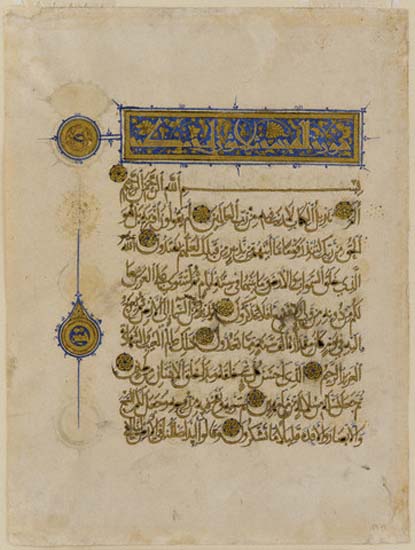 سورة السجدة
بسم الله الرحمن الرحيم
الم تنزيل الكتاب لا ريب فيه من رب العالمين أم يقولون افتراه بل هو
الحق من ربك لتنذر قوما ما أتاهم من نذير من قبلك لعلهم يهتدون الله
الذي خلق السموات والأرض وما بينهما في ستة أيام ثم استوى على العرش ما
لكم من دونه من ولي ولا شفيع أفلا تتذكرون يدبر الأمر من السماء إلى الأرض ثم
يعرج إليه في يوم كان مقداره ألف سنة مما تعدون ذلك عالم الغيب والشهادة
العزيز الرحيم الذي أحسن كل شيء خلقه وبدأ خلق الإنسان من طين
ثم جعل نسله من سلالة من ماء مهين ثم سواه ونفخ فيه من روحه وجعل لكم السمع
والأبصار والأفئدة قليلا ما تشكرون وقالوا أئذا ضللنا في الأرض